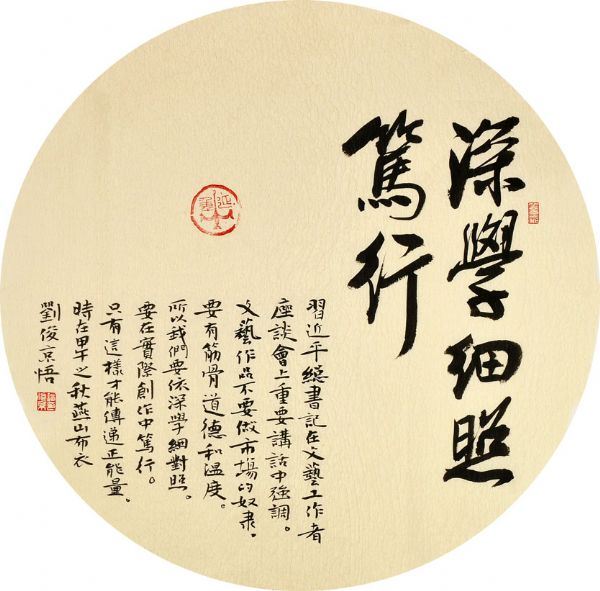 深學細照
篤行
習近平總書記在文藝工作者
座談會上重要講話中強調。
文藝作品不要做市場的奴隶，
要有筋骨道德和溫度。
所以我們要依深學細對照。
要在實際創作中篤行。
只有這樣才能傳递正能量。
時在甲午之秋燕山布衣
劉俊京悟